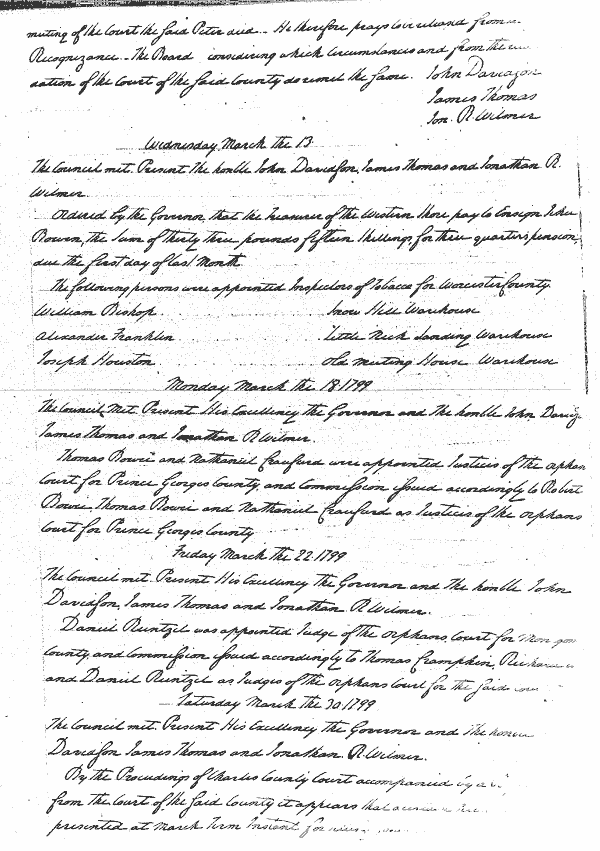 meeting of the Court the said Peter died. He therefore prays to be released from
Recognizance. The Board considering which circumstances and from the
dation of the Court of the said County do remit the same. John Davidson
James Thomas
Jon. R. Wilmer
Wednesday March the 13
The Council met. Present The honble John Davidson, James Thomas and Jonathan R.
Wilmer.
Ordered by the Governor, that the Treasurer of the Western Shore pay to Ensign John
Bowen, the sum of thirty three pounds fifteen shillings, for three quarters pension,
due the first day of last Month.
The following persons were appointed Inspectors of Tobacco for Worcester County.
William Bishop Snow Hill Warehouse
Alexander Franklin Little Neck Landing Warehouse
Joseph Houston Old Meeting House Warehouse
Monday March the 18. 1799
The Council Met. Present His Excellency the Governor and The honble John Davids
James Thomas and Jonathan R. Wilmer.
Thomas Bowie and Nathaniel Craufurd were appointed Justices of the orphan
Court for Prince Georges County, and Commission issued accordingly to Robert
Bowie, Thomas Bowie and Nathaniel Craufurd as Justices of the orphans
Court for Prince Georges County
Friday March the 22. 1799
The Council met. Present His Excellency the Governor and The honble John
Davidson, James Thomas and Jonathan R. Wilmer.
Daniel Runtzel was appointed Judge of the orphans Court for
County, and Commission issued accordingly to Thomas Cramphin,
and Daniel Runtzel as Judges of the orphans Court for the said
Saturday March the 30. 1799
The Council met. Present His Excellency the Governor and The
Davidson James Thomas and Jonathan R. Wilmer.
By the Proceedings of Charles County Court accompanied by a
from the Court of the said County it appears that a
presented at March Term Instant for